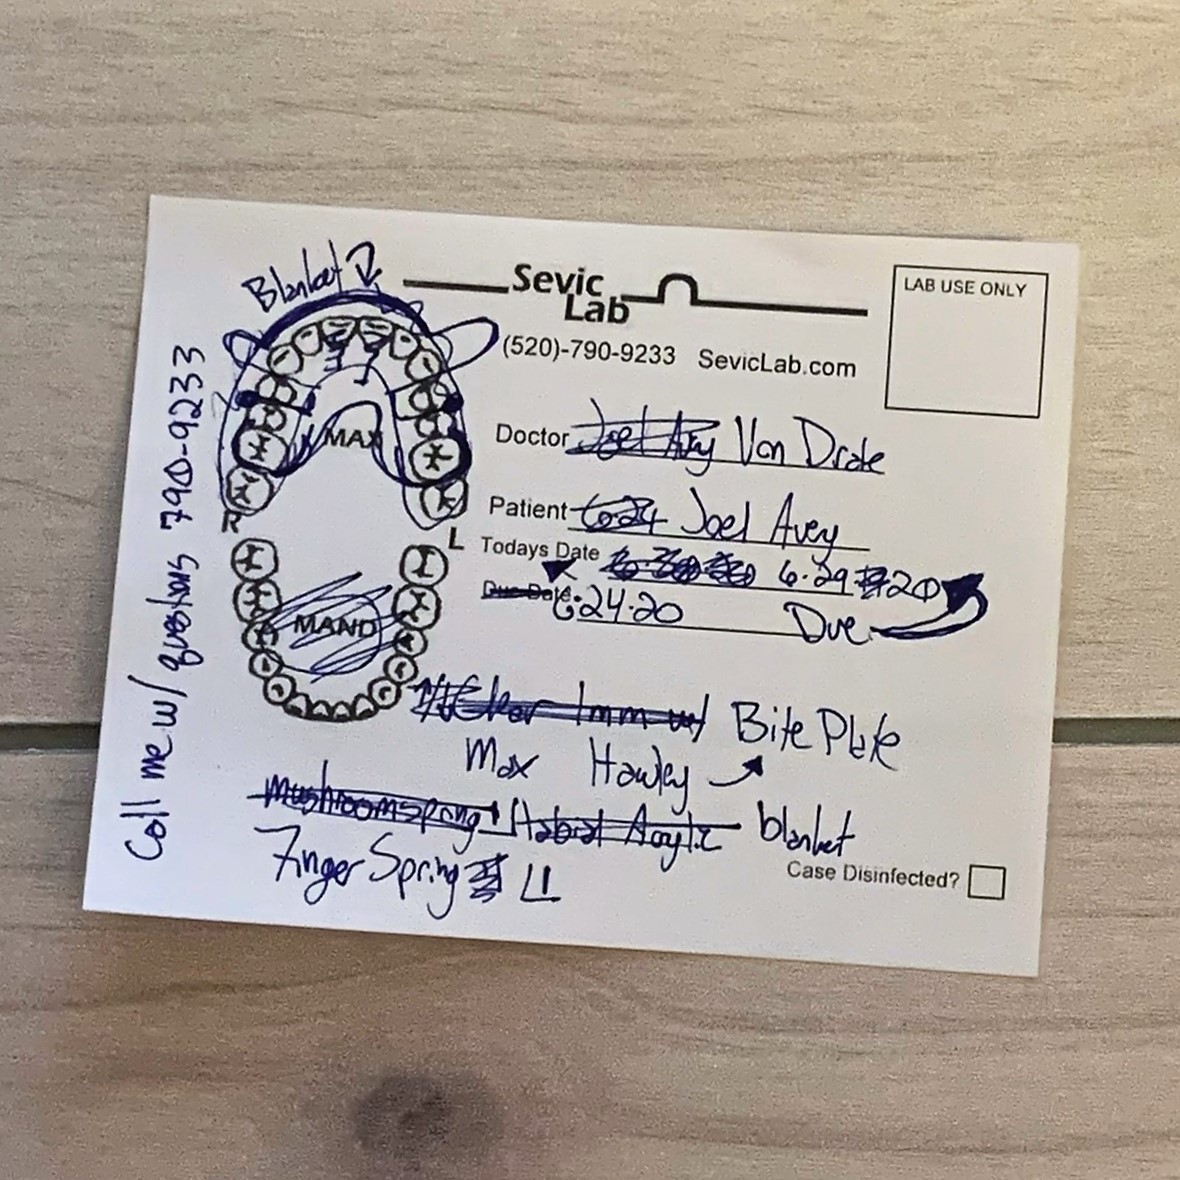 Blanket
Sevic
Lab
LAB USE ONLY
(520)-790-9233 SevicLab.com
Call me w/ questions 790-9233
MAX
Doctor Joel Avey Van Drake
Patient 6-24 Joel Avey
R
L
Todays Date 6.29 20
Due Date 6.24.20 Due
MAND
Clear Imm Bite Plate
Max Hawley
mushroom spring Habial Acrylic blanket
Finger Spring
Case Disinfected?